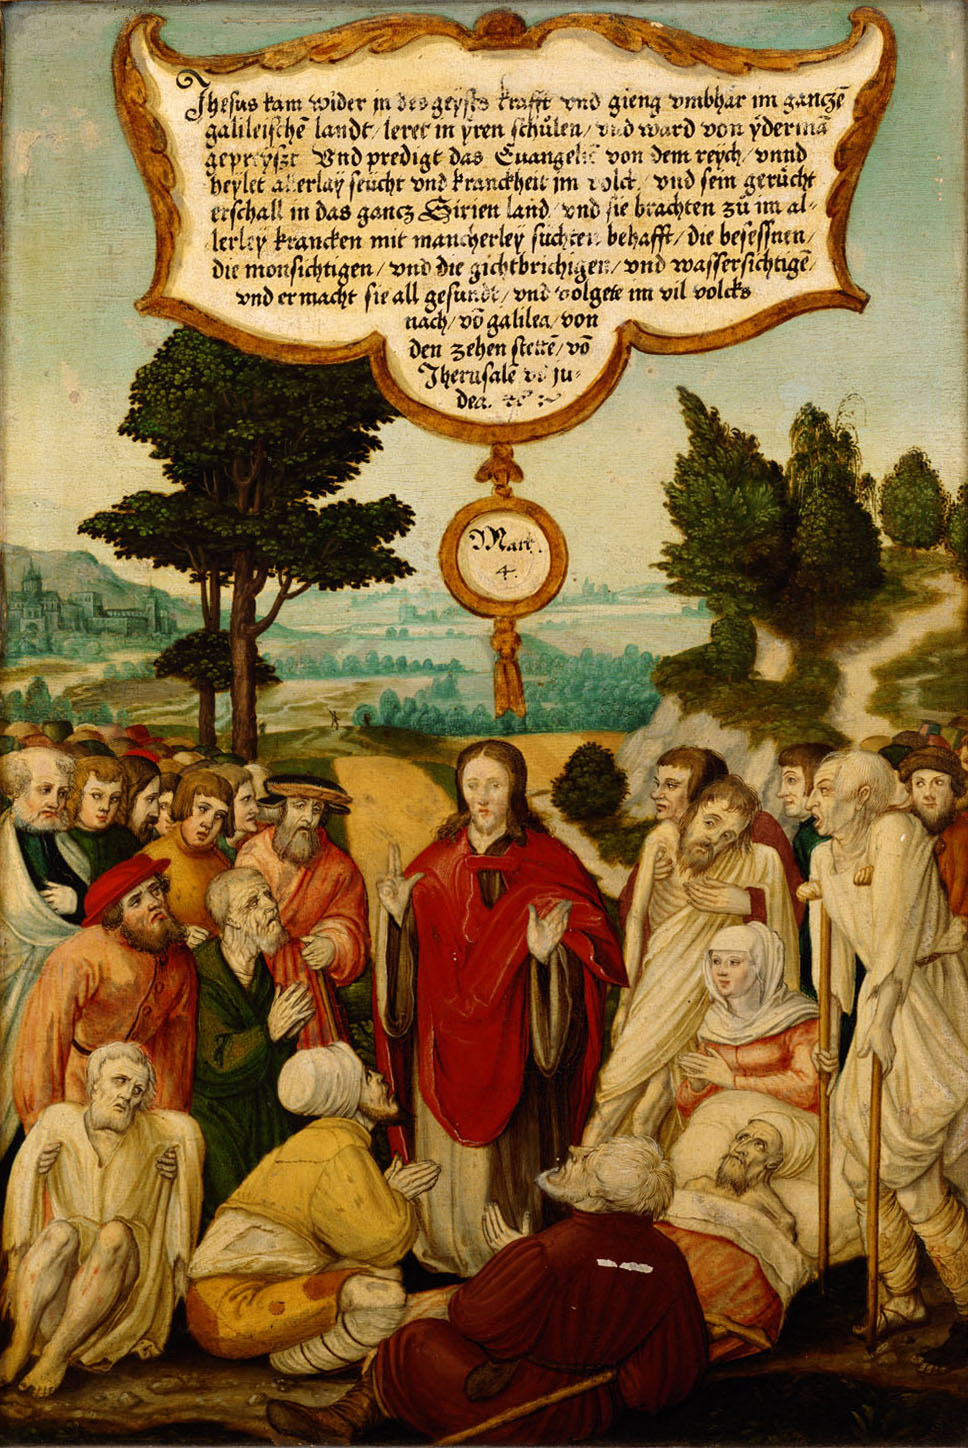 Jhesus kam wider jn des geysts krafft vnd gieng vmbhar im ganczē
galileischē landt/ leret in yren schůlen/ vnd ward von ydermā
gepreyszt Vnd predigt das Euangeliū von dem reych/ vnnd
heylet allerlay seucht vnd kranckheit jm volck/ vnd sein gerücht
erschall in das gancz Sirien land/ vnd sie brachten zů im al-
lerley krancken mit mancherley süchten behafft/ die besessnen/
die monsichtigen/ vnd die gichtbrichigen/ vnd wassersichtigē/
vnd er macht sie all gesundt/ vnd volgete im vil volcks
nach/ vō galilea/ von
den zehen stettē/ vō
Jherusalē vñ ju-
dea.
Mat.
4.